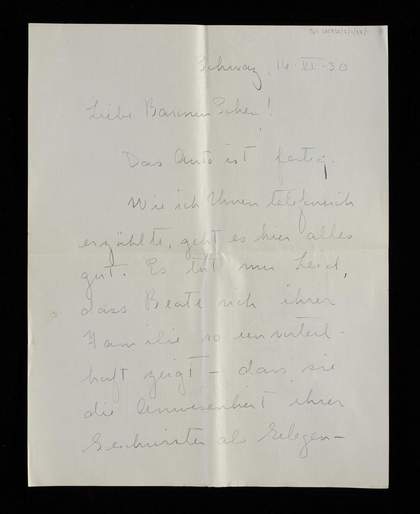 Schwaz, 14 VI - 30
Liebe Baronin Echer!
Das Auto ist fertig.
Wie ich Ihnen telefonisch
erzählte, geht es hier alles
gut. Es tut mir Leid,
dass Beate sich ihrer
Familie so unvorteil-
haft zeigt - dass sie
die Anwesenheit ihrer
Geschwister als Gelegen-